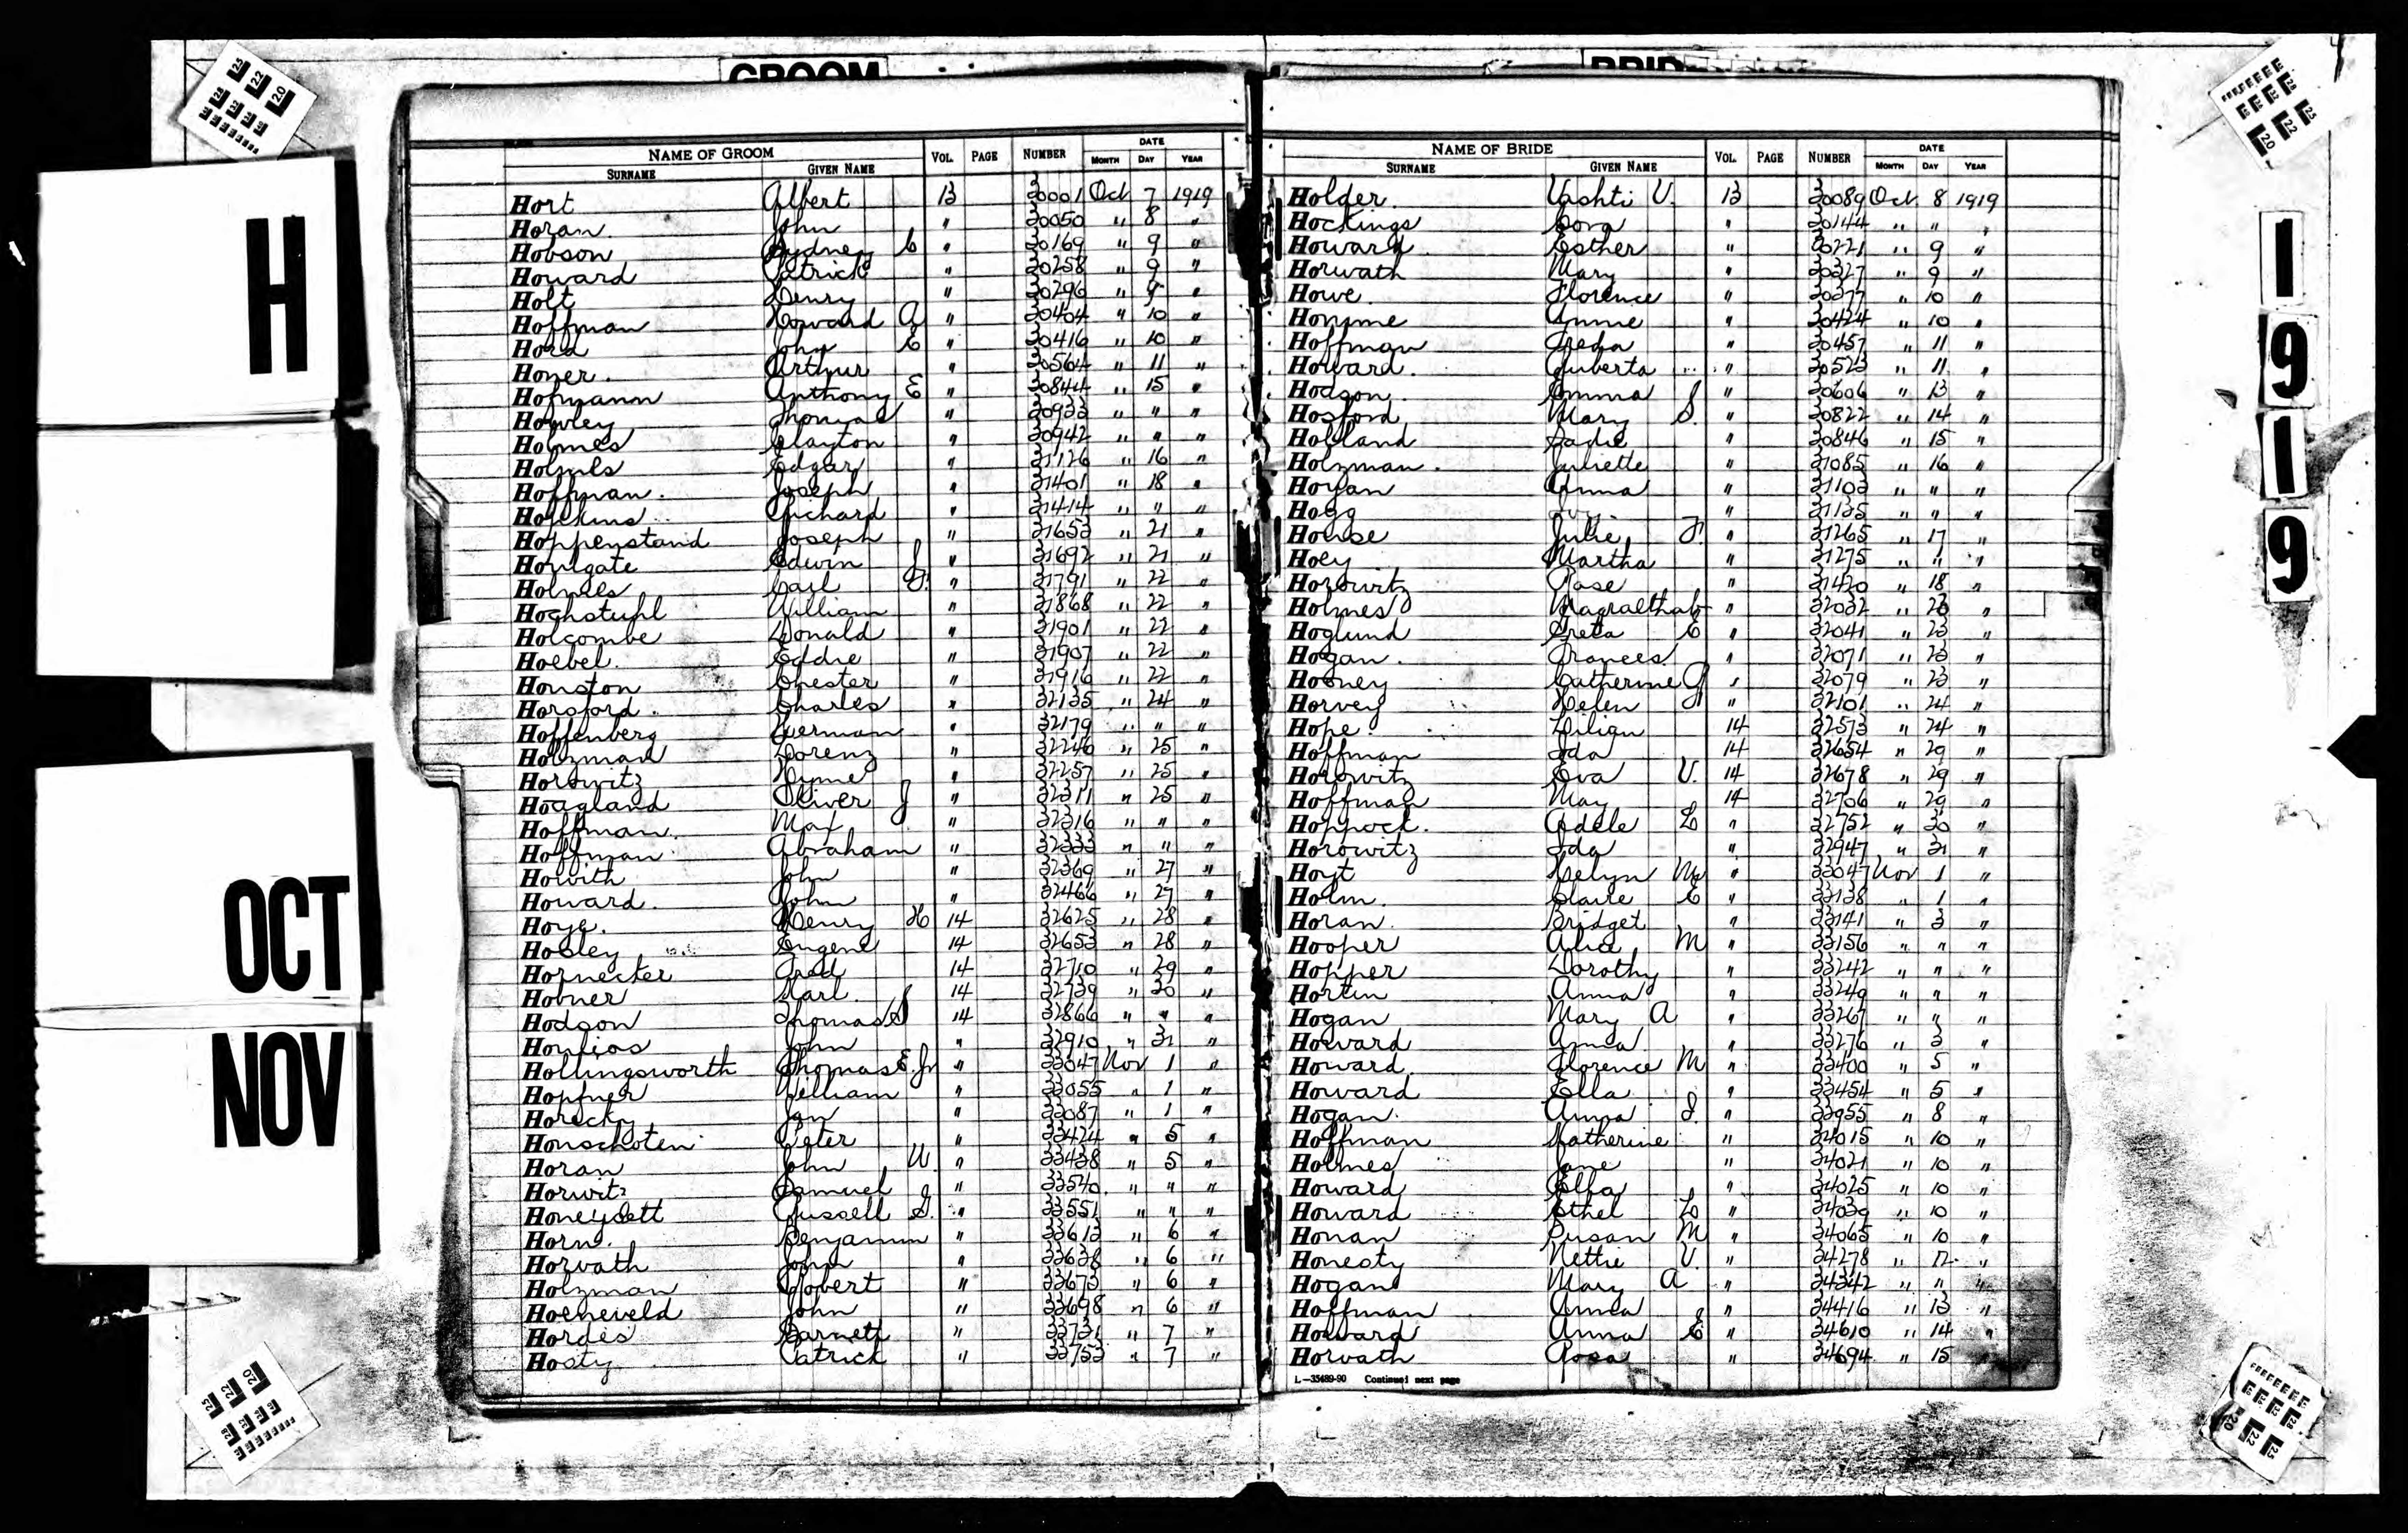 GROOM
BRIDE
H
OCT
NOV
1919
NAME OF GROOM VOL. PAGE NUMBER DATE
SURNAME GIVEN NAME MONTH DAY YEAR
Hort Albert 13 30001 Oct 7 1919
Horan John " 30050 " 8 "
Hobson Sydney C " 30169 " 9 "
Howard Patrick " 30258 " 9 "
Holt Henry " 30296 " 9 "
Hoffman Howard A " 30404 " 10 "
Hord John E " 30416 " 10 "
Hoyer Arthur " 30564 " 11 "
Hofmann Anthony E " 30844 " 15 "
Howley Thomas " 30933 " " "
Holmes Clayton " 30942 " " "
Holmes Edgar " 31126 " 16 "
Hoffman Joseph " 31401 " 18 "
Hopkins Richard " 31414 " " "
Hoppenstand Joseph " 31653 " 21 "
Hougate Edwin J " 31692 " 21 "
Holmes Carl F. " 31791 " 22 "
Hochstuhl William " 31868 " 22 "
Holcombe Donald " 31901 " 22 "
Hoebel Eddie " 31907 " 22 "
Houston Chester " 31916 " 22 "
Horsford Charles " 32135 " 24 "
Hoffenberg Herman " 32179 " " "
Holzman Lorenz " 32246 " 25 "
Horowitz Hyme " 32257 " 25 "
Hoagland Oliver J " 32311 " 25 "
Hoffman Max " 32316 " " "
Hoffman Abraham " 32333 " " "
Howith John " 32369 " 27 "
Howard John " 32466 " 27 "
Hoye Henry H 14 32625 " 28 "
Hosley Eugene 14 32653 " 28 "
Hornecker Arad 14 32710 " 29 "
Hobner Karl 14 32739 " 30 "
Hodgson Thomas S 14 32866 " " "
Houlios John " 32910 " 31 "
Hollingsworth Thomas E. Jr " 33047 Nov 1 "
Hopfner William " 33055 " 1 "
Horecky Jan " 33087 " 1 "
Honschoten Peter " 33424 " 5 "
Horan John W. " 33438 " 5 "
Horwitz Samuel " 33540 " " "
Honeydett Russell G. " 33551 " " "
Horn Benjamin " 33613 " 6 "
Horvath John " 33638 " 6 "
Holzman Robert " 33673 " 6 "
Hoeneveld John " 33698 " 6 "
Hordes Barnett " 33731 " 7 "
Hosty Patrick " 33753 " 7 "
NAME OF BRIDE VOL. PAGE NUMBER DATE
SURNAME GIVEN NAME MONTH DAY YEAR
Holder Vashti V. 13 30089 Oct 8 1919
Hockings Cora " 30144 " " "
Howard Esther " 30221 " 9 "
Horwath Mary " 30327 " 9 "
Howe Florence " 30377 " 10 "
Homme Annie " 30424 " 10 "
Hoffman Freda " 30457 " 11 "
Howard Guberta " 30523 " 11 "
Hodgson Emma J " 30606 " 13 "
Hosford Mary S. " 30822 " 14 "
Holland Sadie " 30846 " 15 "
Holzman Juliette " 31085 " 16 "
Horan Anna " 31103 " " "
Hogg " 31135 " " "
House Julie F. " 31265 " 17 "
Hoey Martha " 31275 " " "
Horowitz Rose " 31420 " 18 "
Holmes " 32032 " 23 "
Hoglund Greta C " 32041 " 23 "
Hogan Frances " 32071 " 23 "
Hooney Catherine J " 32079 " 23 "
Horvey Helen " 32101 " 24 "
Hope Lilian 14 32573 " 24 "
Hoffman Ida 14 32654 " 29 "
Horowitz Eva V. 14 32678 " 29 "
Hoffman May 14 32706 " 29 "
Hoppock Adele L " 32752 " 30 "
Horowitz Ida " 32947 " 31 "
Hoyt Helyn Mc " 33047 Nov 1 "
Holm Claire C " 33138 " 1 "
Horan Bridget " 33141 " 3 "
Hooper Alice M " 33156 " " "
Hopper Dorothy " 33242 " " "
Hortin Anna " 33249 " " "
Hogan Mary A " 33267 " " "
Howard Anna " 33276 " 3 "
Howard Florence M " 33400 " 5 "
Howard Ella " 33454 " 5 "
Hogan Anna I. " 33955 " 8 "
Hoffman Katherine " 34015 " 10 "
Holmes Jane " 34021 " 10 "
Howard Ella " 34025 " 10 "
Howard Ethel L " 34039 " 10 "
Honan Susan M " 34065 " 10 "
Honesty Nettie V. " 34278 " 12 "
Hogan Mary A " 34342 " " "
Hoffman Anna " 34416 " 13 "
Howard Anna E " 34610 " 14 "
Horvath Rosa " 34694 " 15
L—35489-90 Continued next page